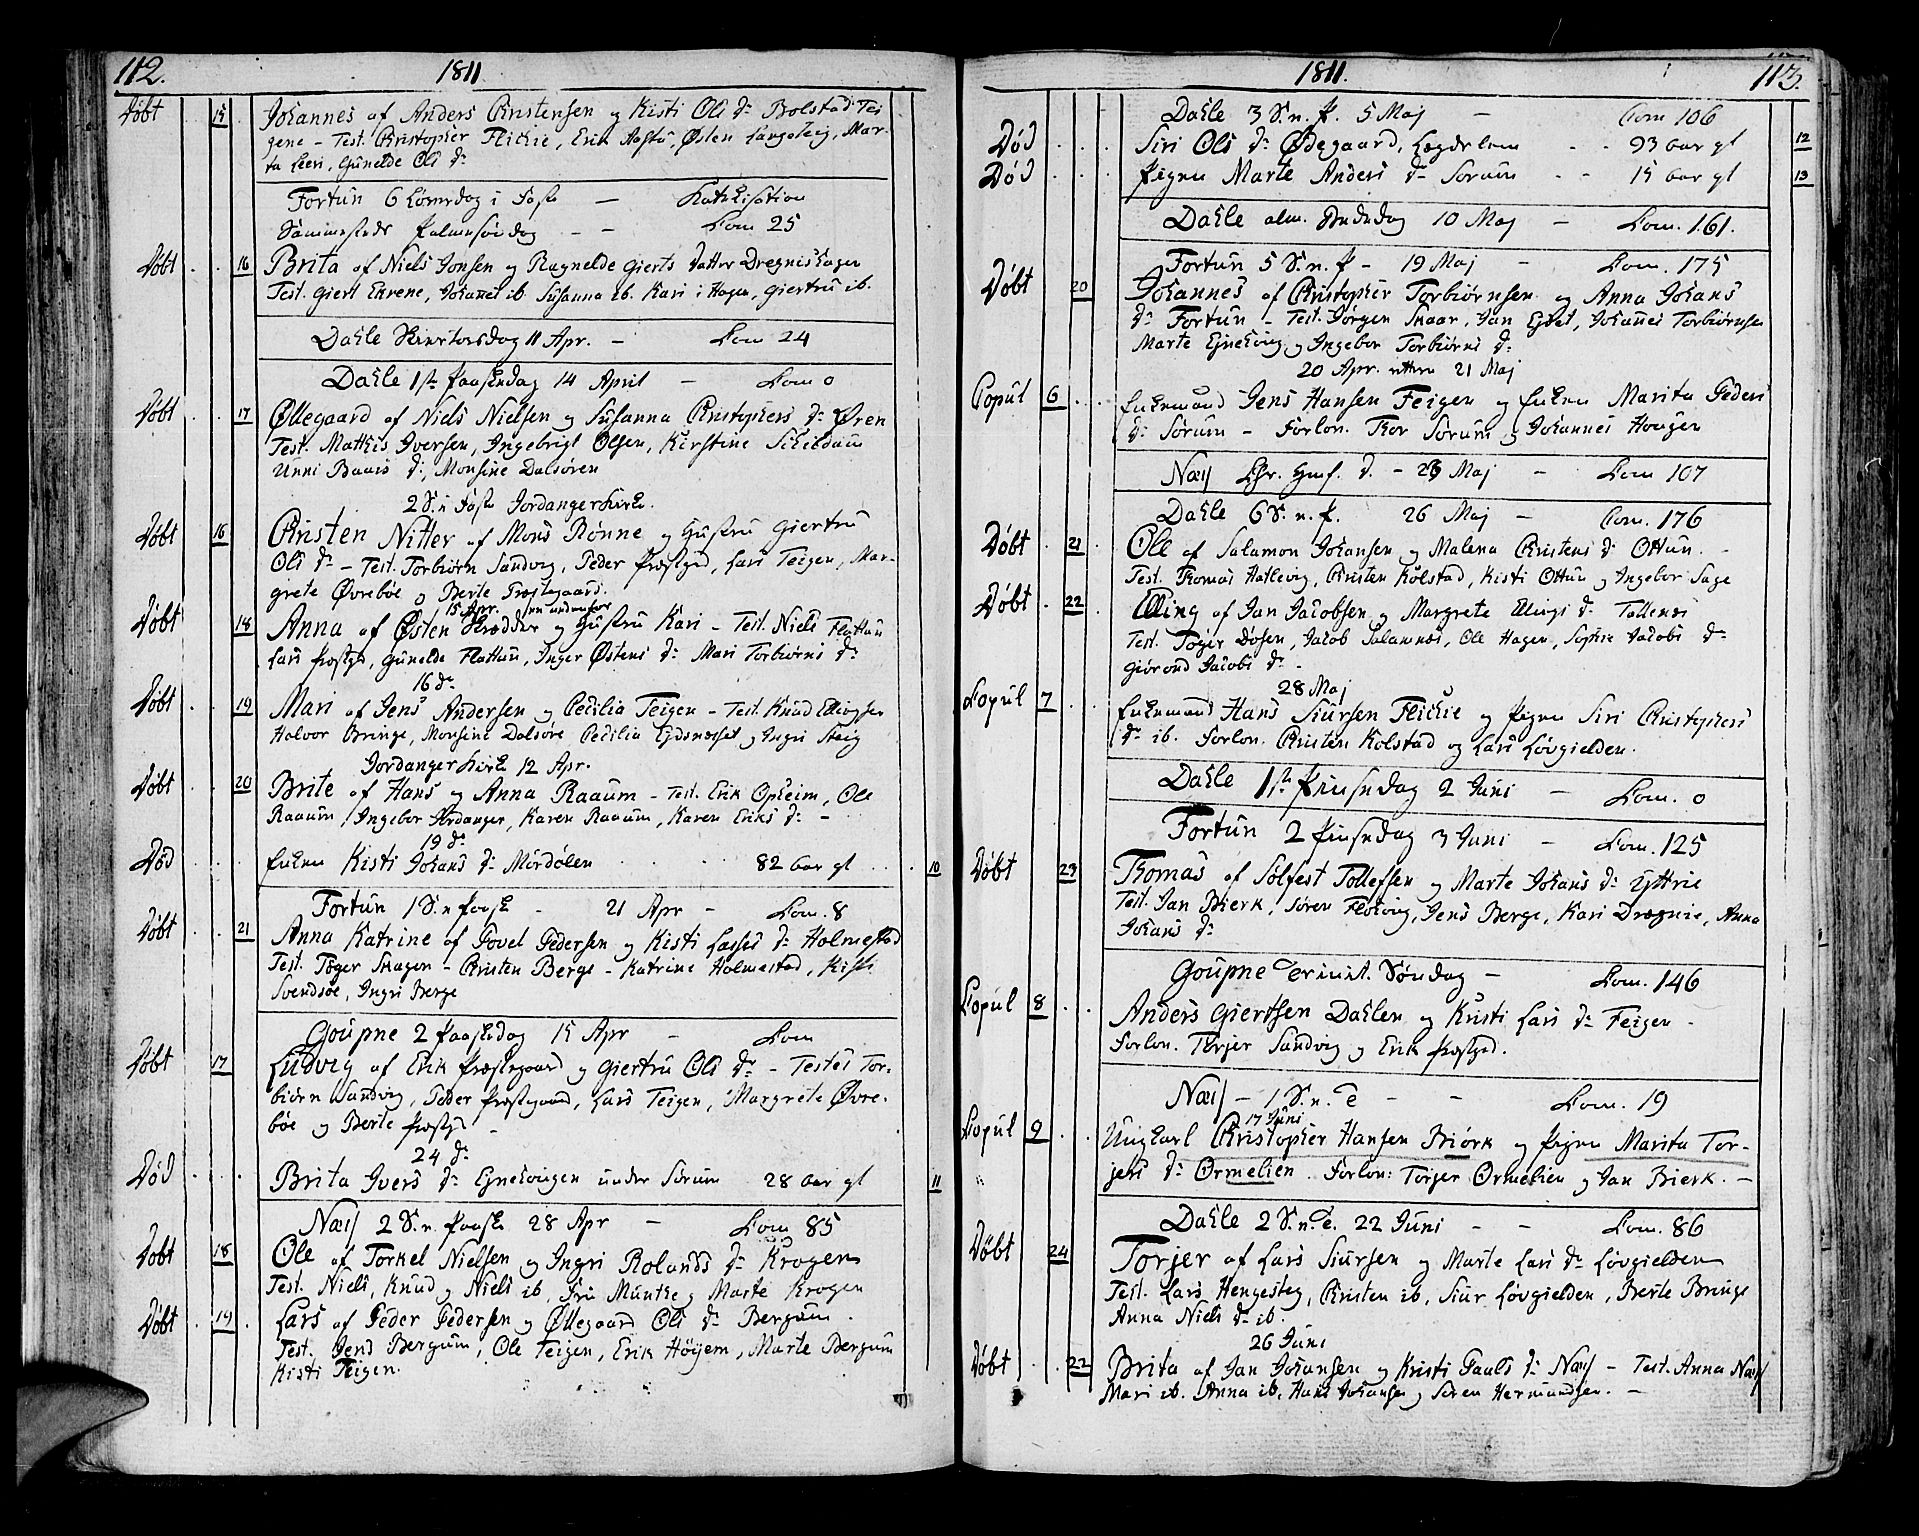 112. 1811
Døbt 15 Johannes af Anders Christensen og Kisti Ols Dr Bolstad Tei
gene - Test. Christopher Flickie, Erik Aastu, Østen Langeteig, Mar-
ta Leeri, Gunelde Ols dr
Fortun 6 Løverdag i Faste — Kathisation
Sammesteds Palmesøndag - - Com 25
Døbt 16 Brita af Niels Jonsen og Ragnelde Gierts Datter Dregnishagen
Test. Giert Ekrene, Johannes ib. Susanna ib. Kari i Hagen, Giertru ib.
Dahle Skiertorsdag 11 Apr. - Com 24
Dahle 1ste Paaskedag 14 April - Com 0
Døbt 17 Øllegaard af Niels Nielsen og Susanna Christophers Dr Øren
Test. Mathis Iversen, Ingebrigt Olsen, Kirstine Schildau
Unni Baars dr, Monsine Dalsøren
2 S. i Faste Jordanger Kirke.
Døbt 16 Christen Nitter af Mons Rønne og Hustru Giertru
Ols dr - Test. Torbiørn Sandvig, Peder Præstgrd, Lars Teigen, Mar-
grete Øvrebøe og Berte Præstegaard.
15 Apr.
Døbt 18 Anna af Østen Skrædder og Hustru Kari - Test. Niels Flattun
Lars Præstgrd, Gunelde Flattun, Inger Østens dr Mari Torbiørns dr
16 dr
Døbt 19 Mari af Jens Andersen og Cecilia Teigen - Test. Knud Ellingsen
Halvor Bringe, Monsine Dalsøre Cecilia Ejdsnæset og Ingri Steig
Jordanger Kirke 12 Apr.
Døbt 20 Brite af Hans og Anna Raaum - Test. Erik Opheim, Ole
Raaum, Ingebor Jordanger, Karen Raaum, Karen Eriks dr -
19 dr
Død Enken Kisti Johans dr Mørdølen 82 aar gl 10
Fortun 1 S. n Paaske - 21 Apr - Com. 8
Døbt 21 Anna Katrine af Povel Pedersen og Kisti Lasses dr Holmestad
Test. Tøger Skagen - Christen Berge - Katrine Holmestad, Kisti
Svendsøe, Ingri Berge
Goupne 2 Paaskedag 15 Apr - Com
Døbt 17 Ludvig af Erik Præstegaard og Giertru Ols dr - Testes Tor-
biørn Sandvig, Peder Præstgaard, Lars Teigen, Margrete Øvre-
bøe og Berte Præstgd -
24 dr
Død Brita Ivers dr Ejnehougen under Sorum 28 aar gl 11
Næs 2 S. n. Paaske 28 Apr - Com 85
Døbt 18 Ole af Torkel Nielsen og Ingri Rolands dr Krogen
Test. Niels, Knud og Niels ib, Fru Munthe og Marte Krogen
Døbt 19 Lars af Peder Pedersen og Øllegaard Ols dr Bergum.
Test. Jens Bergum, Ole Teigen, Erik Høyem, Marte Bergum
Kisti Teigen.
1811. 113.
Dahle 3 S. n. P. 5 Maj - Com 106
Død Siri Ols dr Ødegaard, Lægdslem - - 93 aar gl 12
Død Pigen Marte Anders dr Sorum - - 15 aar gl 13
Dahle alm. Bededag 10 Maj - Com. 161.
Fortun 5 S. n. P - 19 Maj - Com. 175
Døbt 20 Johannes af Christopher Torbiørnsen og Anna Johans
dr Fortun - Test. Jørgen Skaar, Jan Ejdet, Johannes Torbiørnsen
Marte Ejnehoug og Ingebor Torbiørns dr
20 Apr. 21 Maj
Copul 6 Enkemand Jens Hansen Feigen og Enken Marita Peders
dr Sørum - Forlov. Thor Sørum og Johannes Hougen
Næs Chr. Hmf. d. - 23 Maj - Com 107
Dahle 6 S. n. P. 26 Maj - Com. 176
Døbt 21 Ole af Salamon Johansen og Malena Christens dr Ottun. -
Test. Thomas Hatlevig, Christen Kolstad, Kisti Ottun og Ingebor Sage
Døbt 22 Elling af Jan Jacobsen og Margrete Ellings dr Tallenæs
Test. Tøger Døsen, Jacob Salamnæs, Ole Hagen, Sophie Jacobs dr
Giørond Jacobs dr -
28 Maj
Copul 7 Enkemand Hans Siursen Flickie og Pigen Siri Christophers
dr ib. Forlov. Christen Kolstad og Lars Løvgielden.
Dahle 1ste Pinsedag 2 Juni - Com. 0
Fortun 2 Pinsedag 3 Juni - Com. 125
Døbt 23 Thomas af Solfest Tollefsen og Marte Johans dr Yttrie
Test. Jan Bierk, Søren Flohoug, Jens Berge, Kari Drægnie, Anna
Johans dr
Goupne Trinit. Søndag - Com. 146
Copul 8 Anders Giertsen Dahlen og Kristi Lars dr Feigen -
Forlov. Torger Sandvig og Erik Præstgd.
Næs - 1 S. n. T. - - Com. 19
17 Juni
Copul 9 Ungkarl Christopher Hansen Biørk og Pigen Marita Tor-
jers dr Ormelien Forlov: Torjer Ormelien og Jan Bierk. -
Dahle 2 S. n. T. 22 Juni - - Com. 86
Døbt 24 Torjer af Lars Siursen og Marte Lars dr Løvgielden
Test. Lars Hengesteg, Christen ib, Siur Løvgielden, Berte Bringe
Anna Niels dr ib.
26 Juni
Døbt 22 Brita af Jan Johansen og Kristi Pauls dr Næs - Test. Anna Næs
Mari ib. Anna ib, Hans Johansen og Søren Hermundsen. -